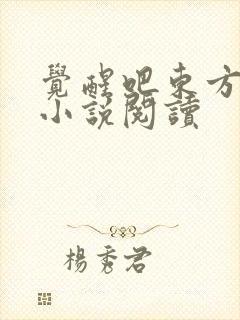 覺醒吧東方
小說閱讀
楊秀君